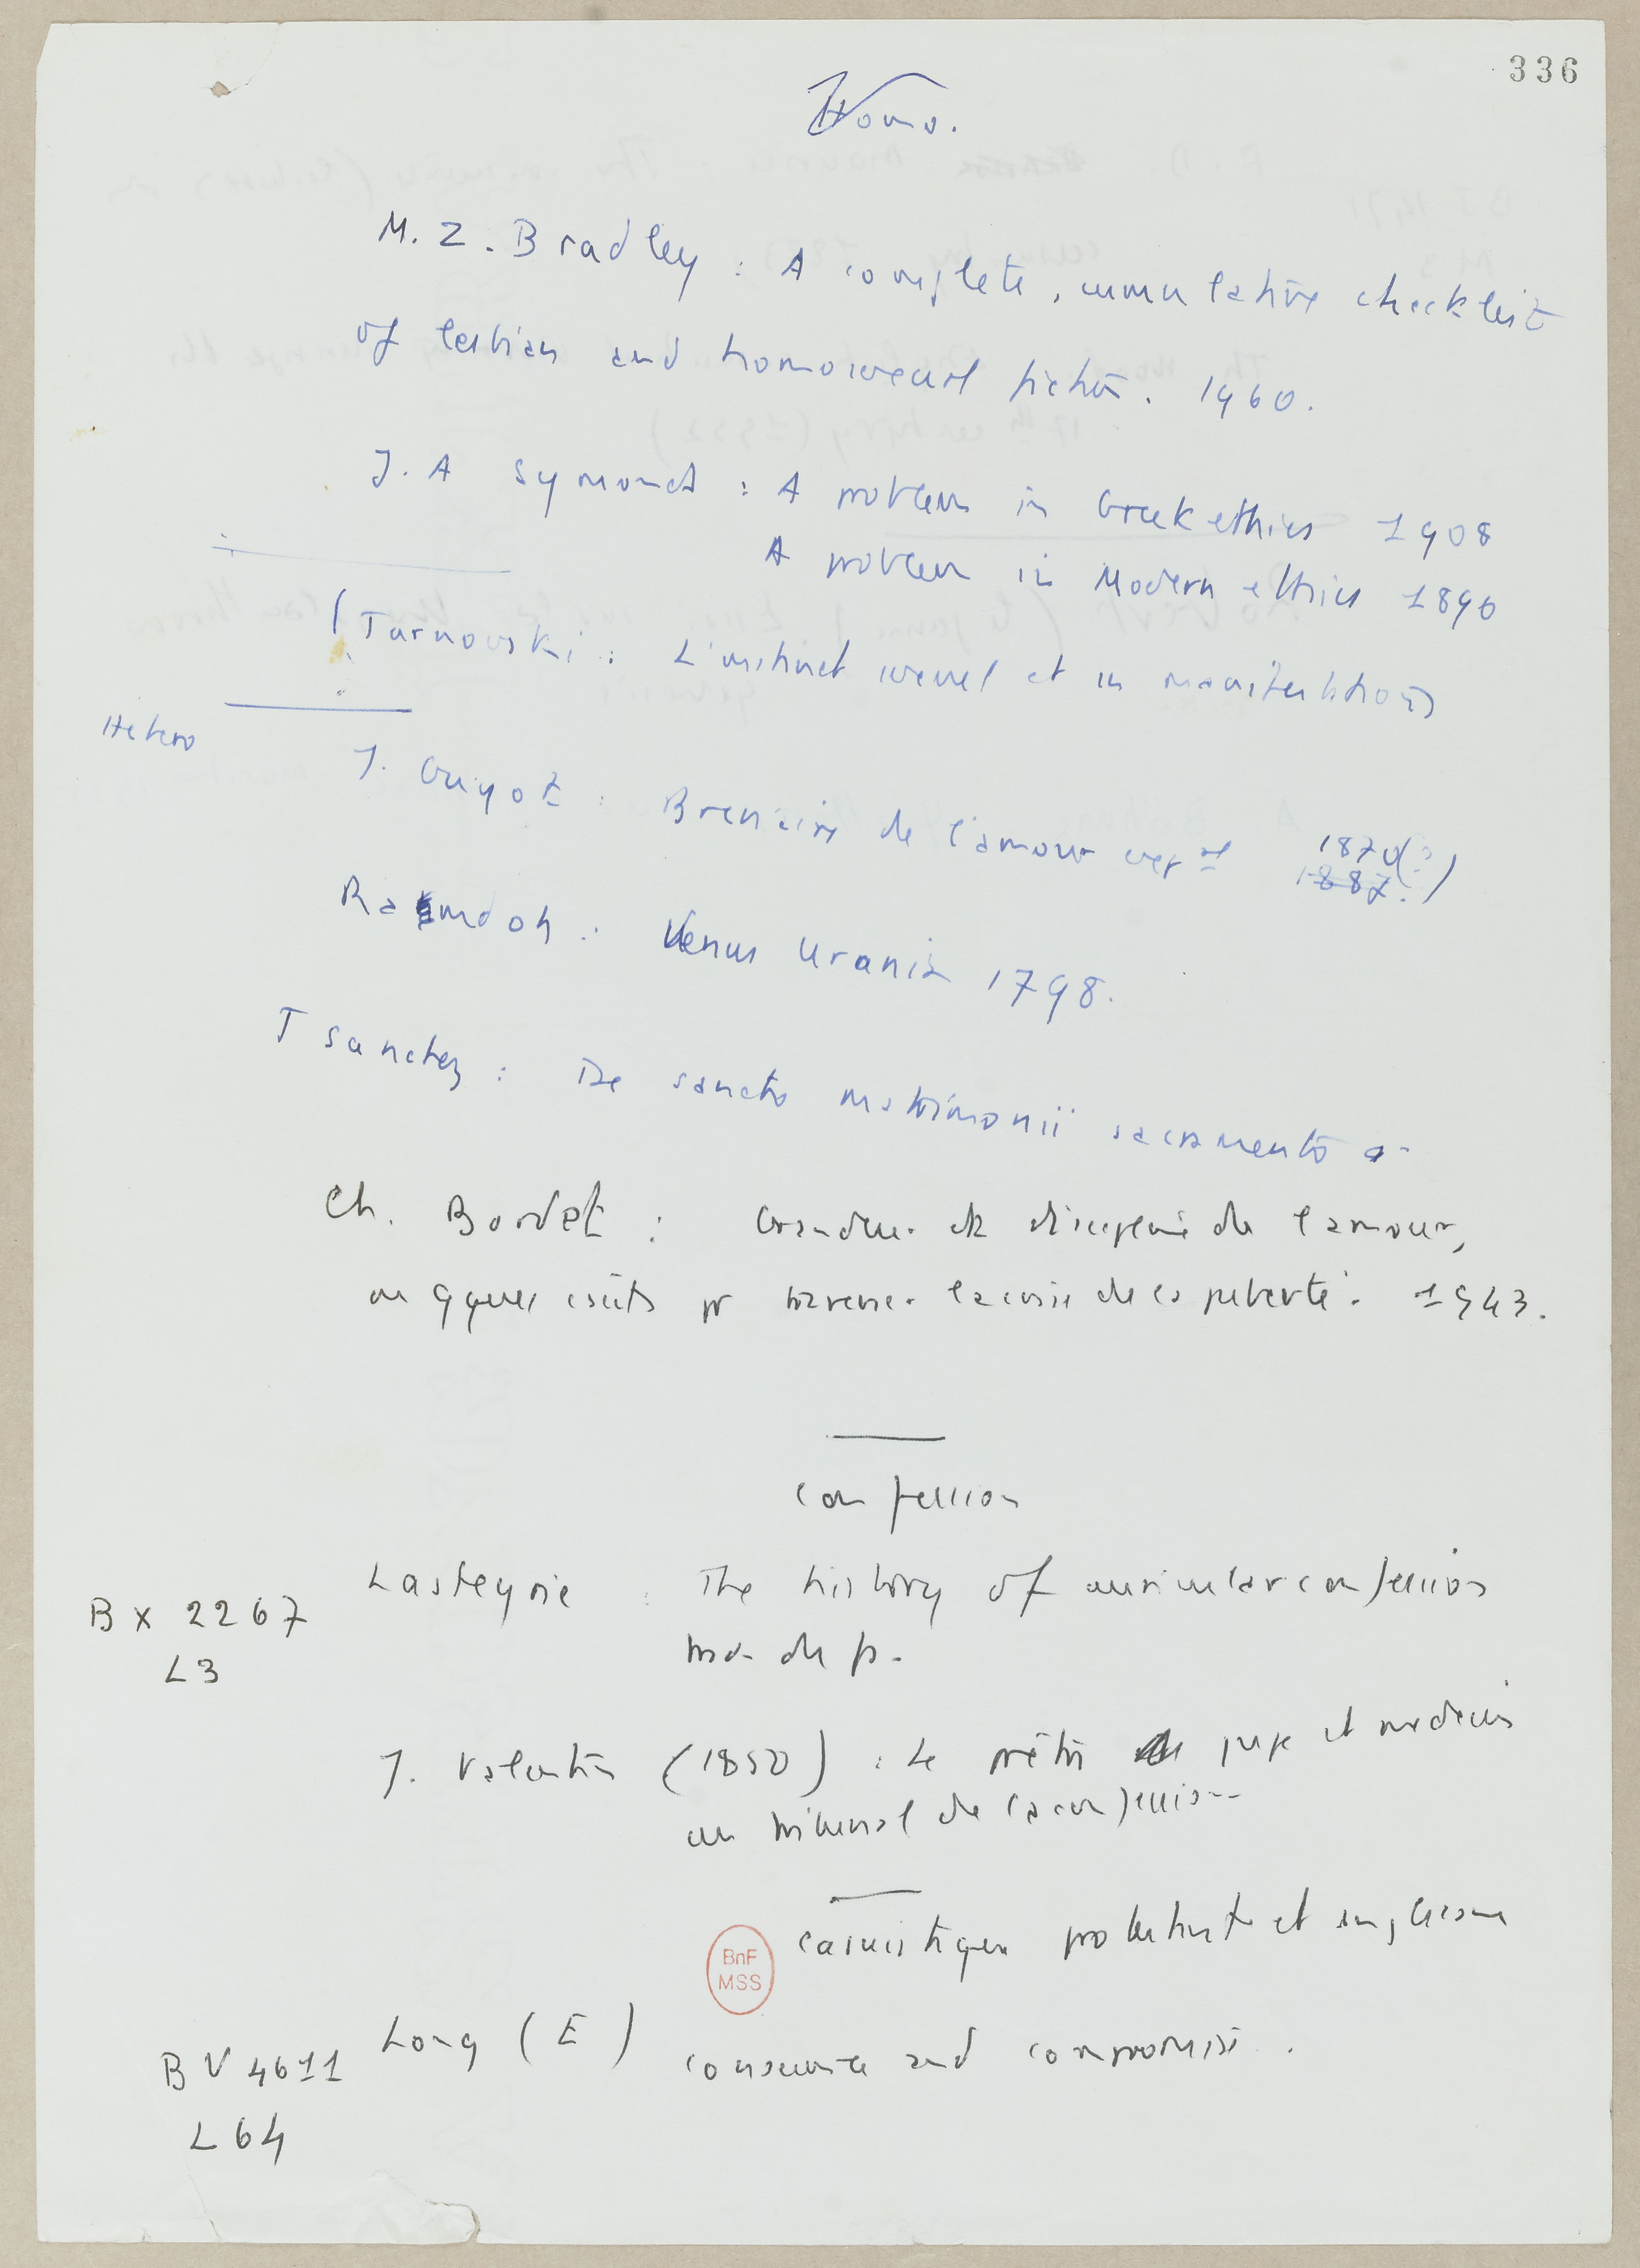 336
Homo.
M. Z. Bradley : A complete, cumulative checklist
of lesbian and homosexual fiction. 1960.
J. A Symonds : A problem in Greek ethics 1908
A problem in Modern ethics 1890
(Tarnovski : L'instinct sexuel et ses manifestations
Hetero
J. Guyot : Breviaire de l'amour expal 1870(?)
1887.
Ramdoh : Venus Urania 1798.
T Sanchez : De sancto matrimonii sacramento
Ch. Bordet : Grandeur et discipline de l'amour,
ou qques traverser la crise de la puberté. 1943.
confession
Lasteyrie : The history of auricular confession
BX 2267
trad. de fr.
L3
J. Valentin (1850) : Le prêtre juge et médecin
au tribunal de la confession
casuistique protestante et anglicane
BnF
MSS
Long (E) conscience and compromise.
BV 4611
L64